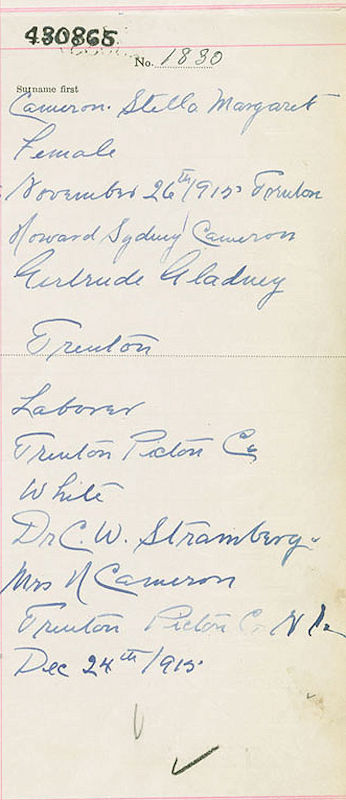 430865
No. 1830
Surname first
Cameron. Stella Margaret
Female
November 26th/915 Trenton
Howard Sydney Cameron
Gertrude Gladney
Trenton
Laborer
Trenton Picton Co
White
Dr C. W. Stramberg.
Mrs H Cameron
Trenton Picton Co N S
Dec 24th/915